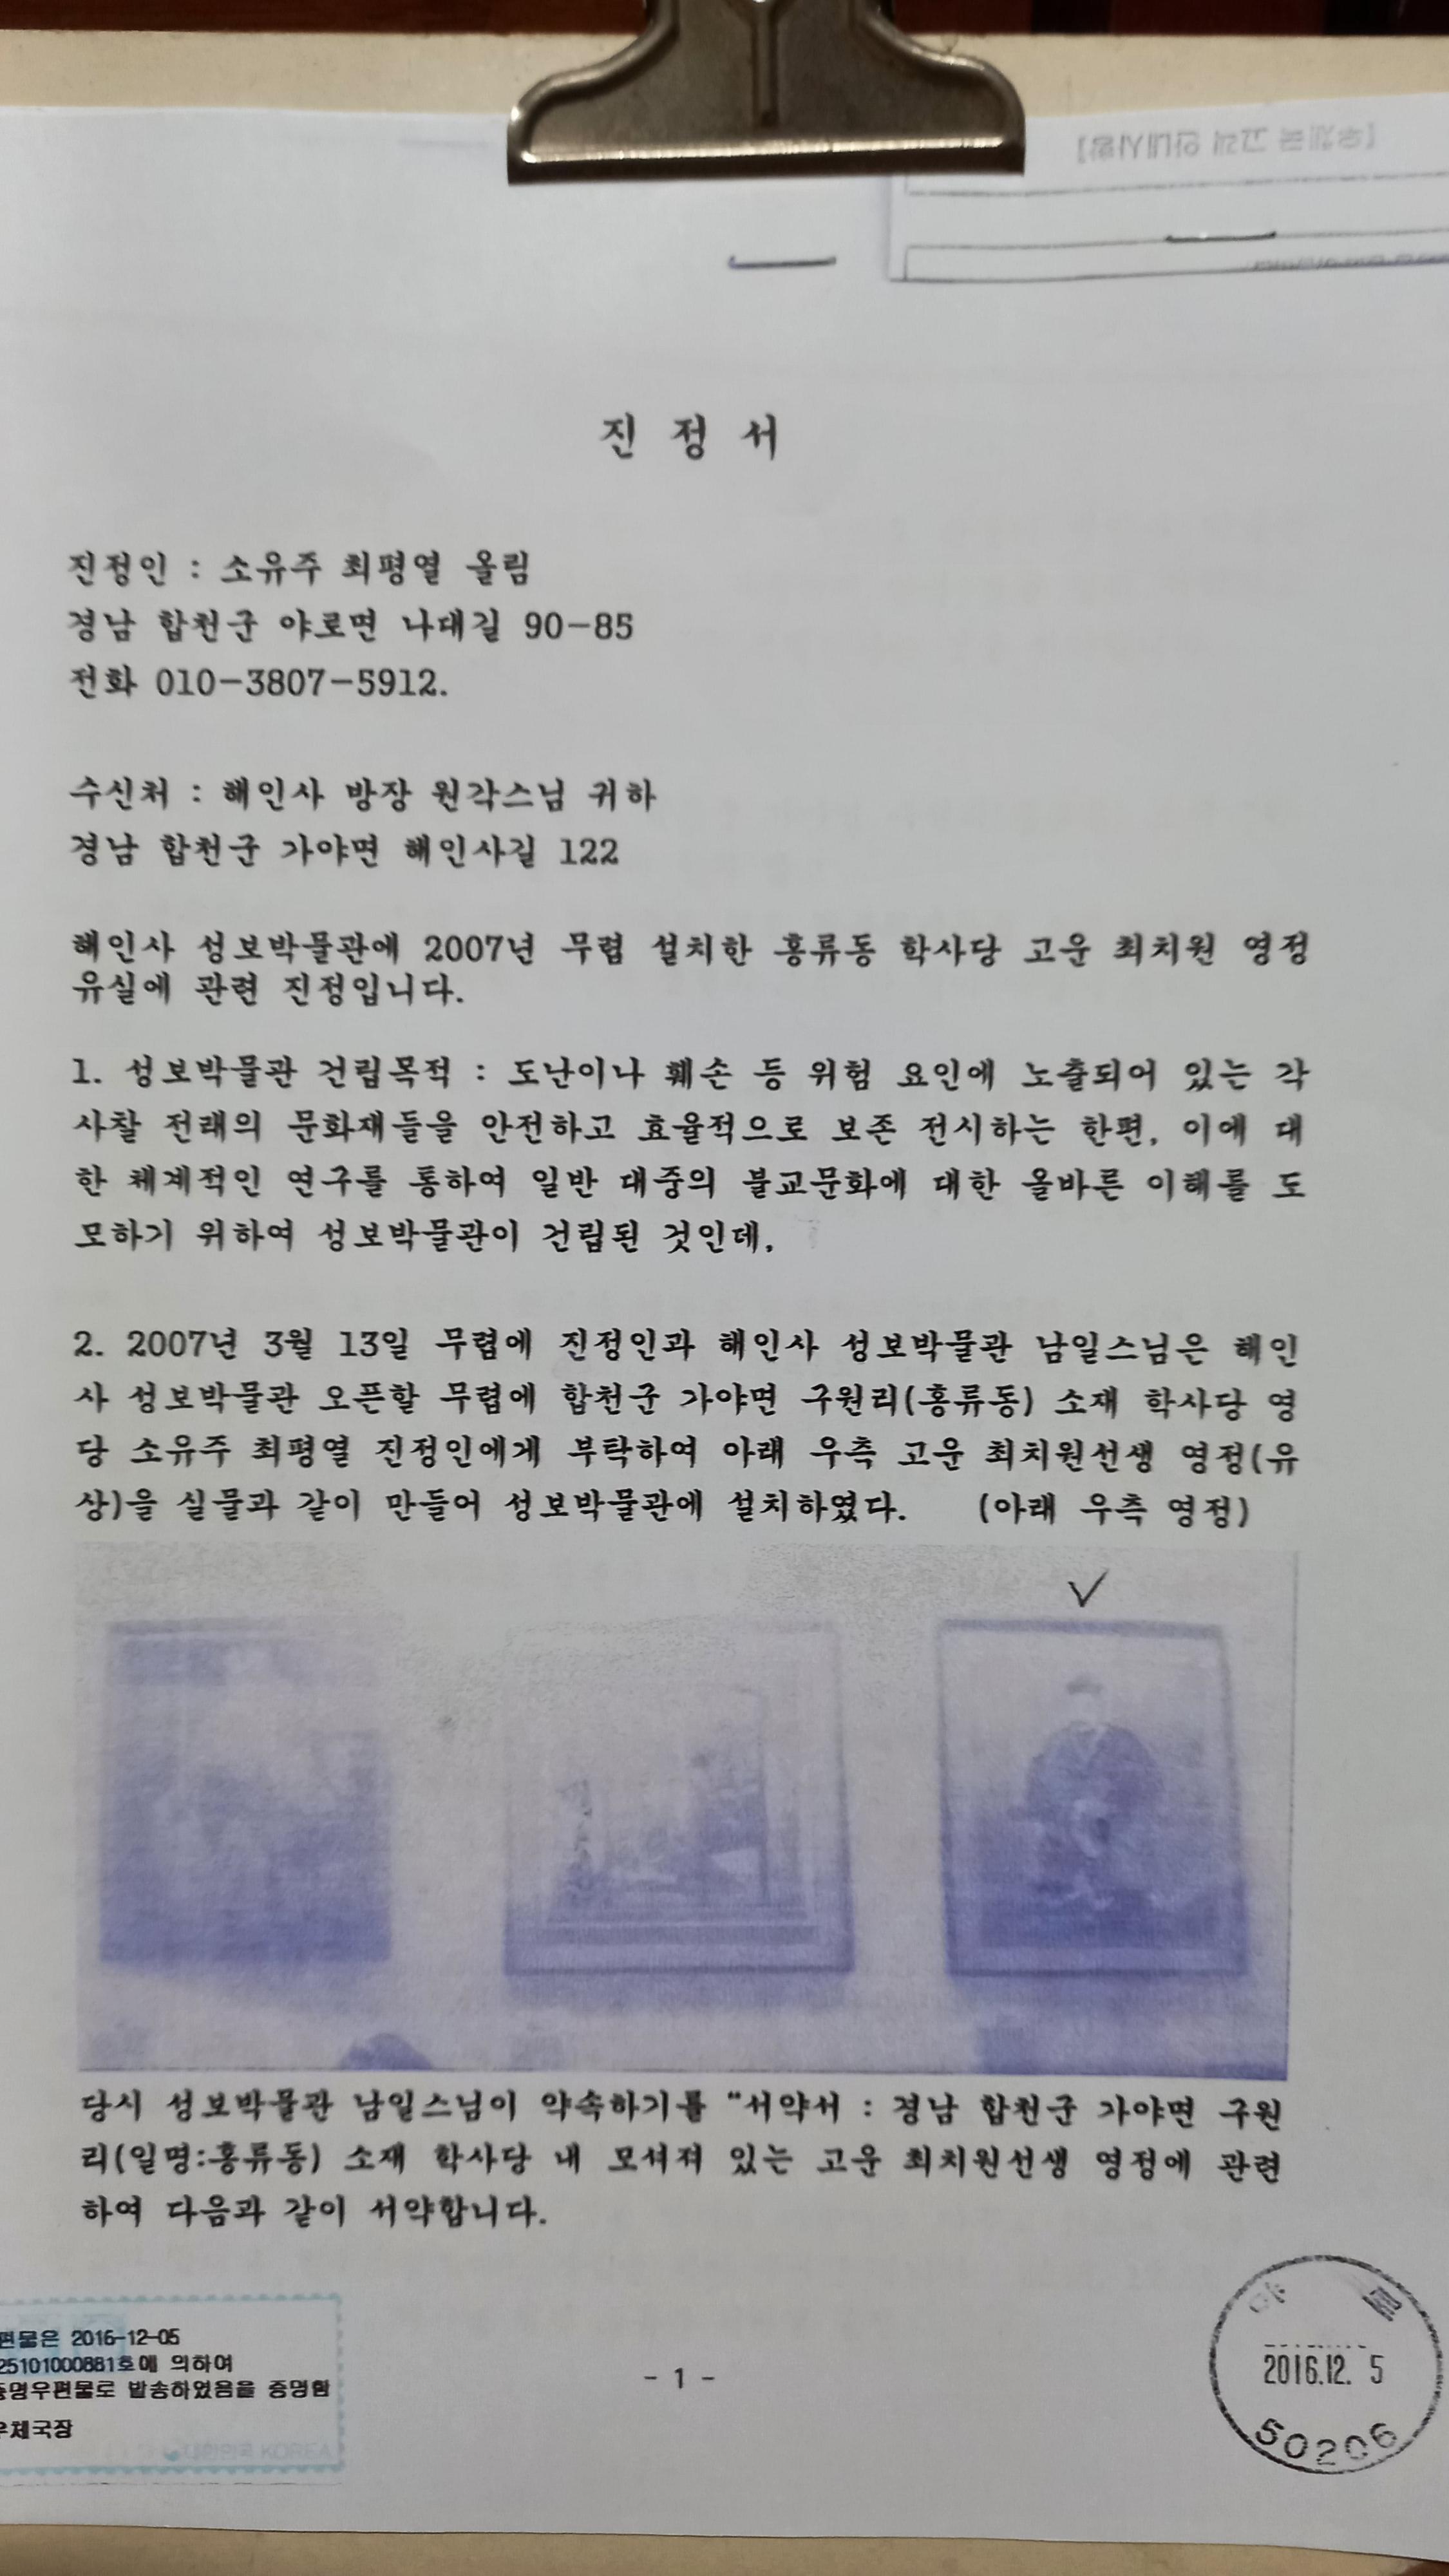 진 정 서
진정인 : 소유주 최평열 올림
경남 합천군 야로면 나대길 90-85
전화 010-3807-5912.
수신처 : 해인사 방장 원각스님 귀하
경남 합천군 가야면 해인사길 122
해인사 성보박물관에 2007년 무렵 설치한 홍류동 학사당 고운 최치원 영정
유실에 관련 진정입니다.
1. 성보박물관 건립목적 : 도난이나 훼손 등 위험 요인에 노출되어 있는 각
사찰 전래의 문화재들을 안전하고 효율적으로 보존 전시하는 한편, 이에 대
한 체계적인 연구를 통하여 일반 대중의 불교문화에 대한 올바른 이해를 도
모하기 위하여 성보박물관이 건립된 것인데,
2. 2007년 3월 13일 무렵에 진정인과 해인사 성보박물관 남일스님은 해인
사 성보박물관 오픈할 무렵에 합천군 가야면 구원리(홍류동) 소재 학사당 영
당 소유주 최평열 진정인에게 부탁하여 아래 우측 고운 최치원선생 영정(유
상)을 실물과 같이 만들어 성보박물관에 설치하였다. (아래 우측 영정)
당시 성보박물관 남일스님이 약속하기를 "서약서 : 경남 합천군 가야면 구원
리(일명:홍류동) 소재 학사당 내 모셔져 있는 고운 최치원선생 영정에 관련
하여 다음과 같이 서약합니다.
편물은 2016-12-05
25101000881호에 의하여
증명우편물로 발송하였음을 증명함
우체국장
대한민국 KOREA
- 1 -
야 로
2016.12. 5
50206